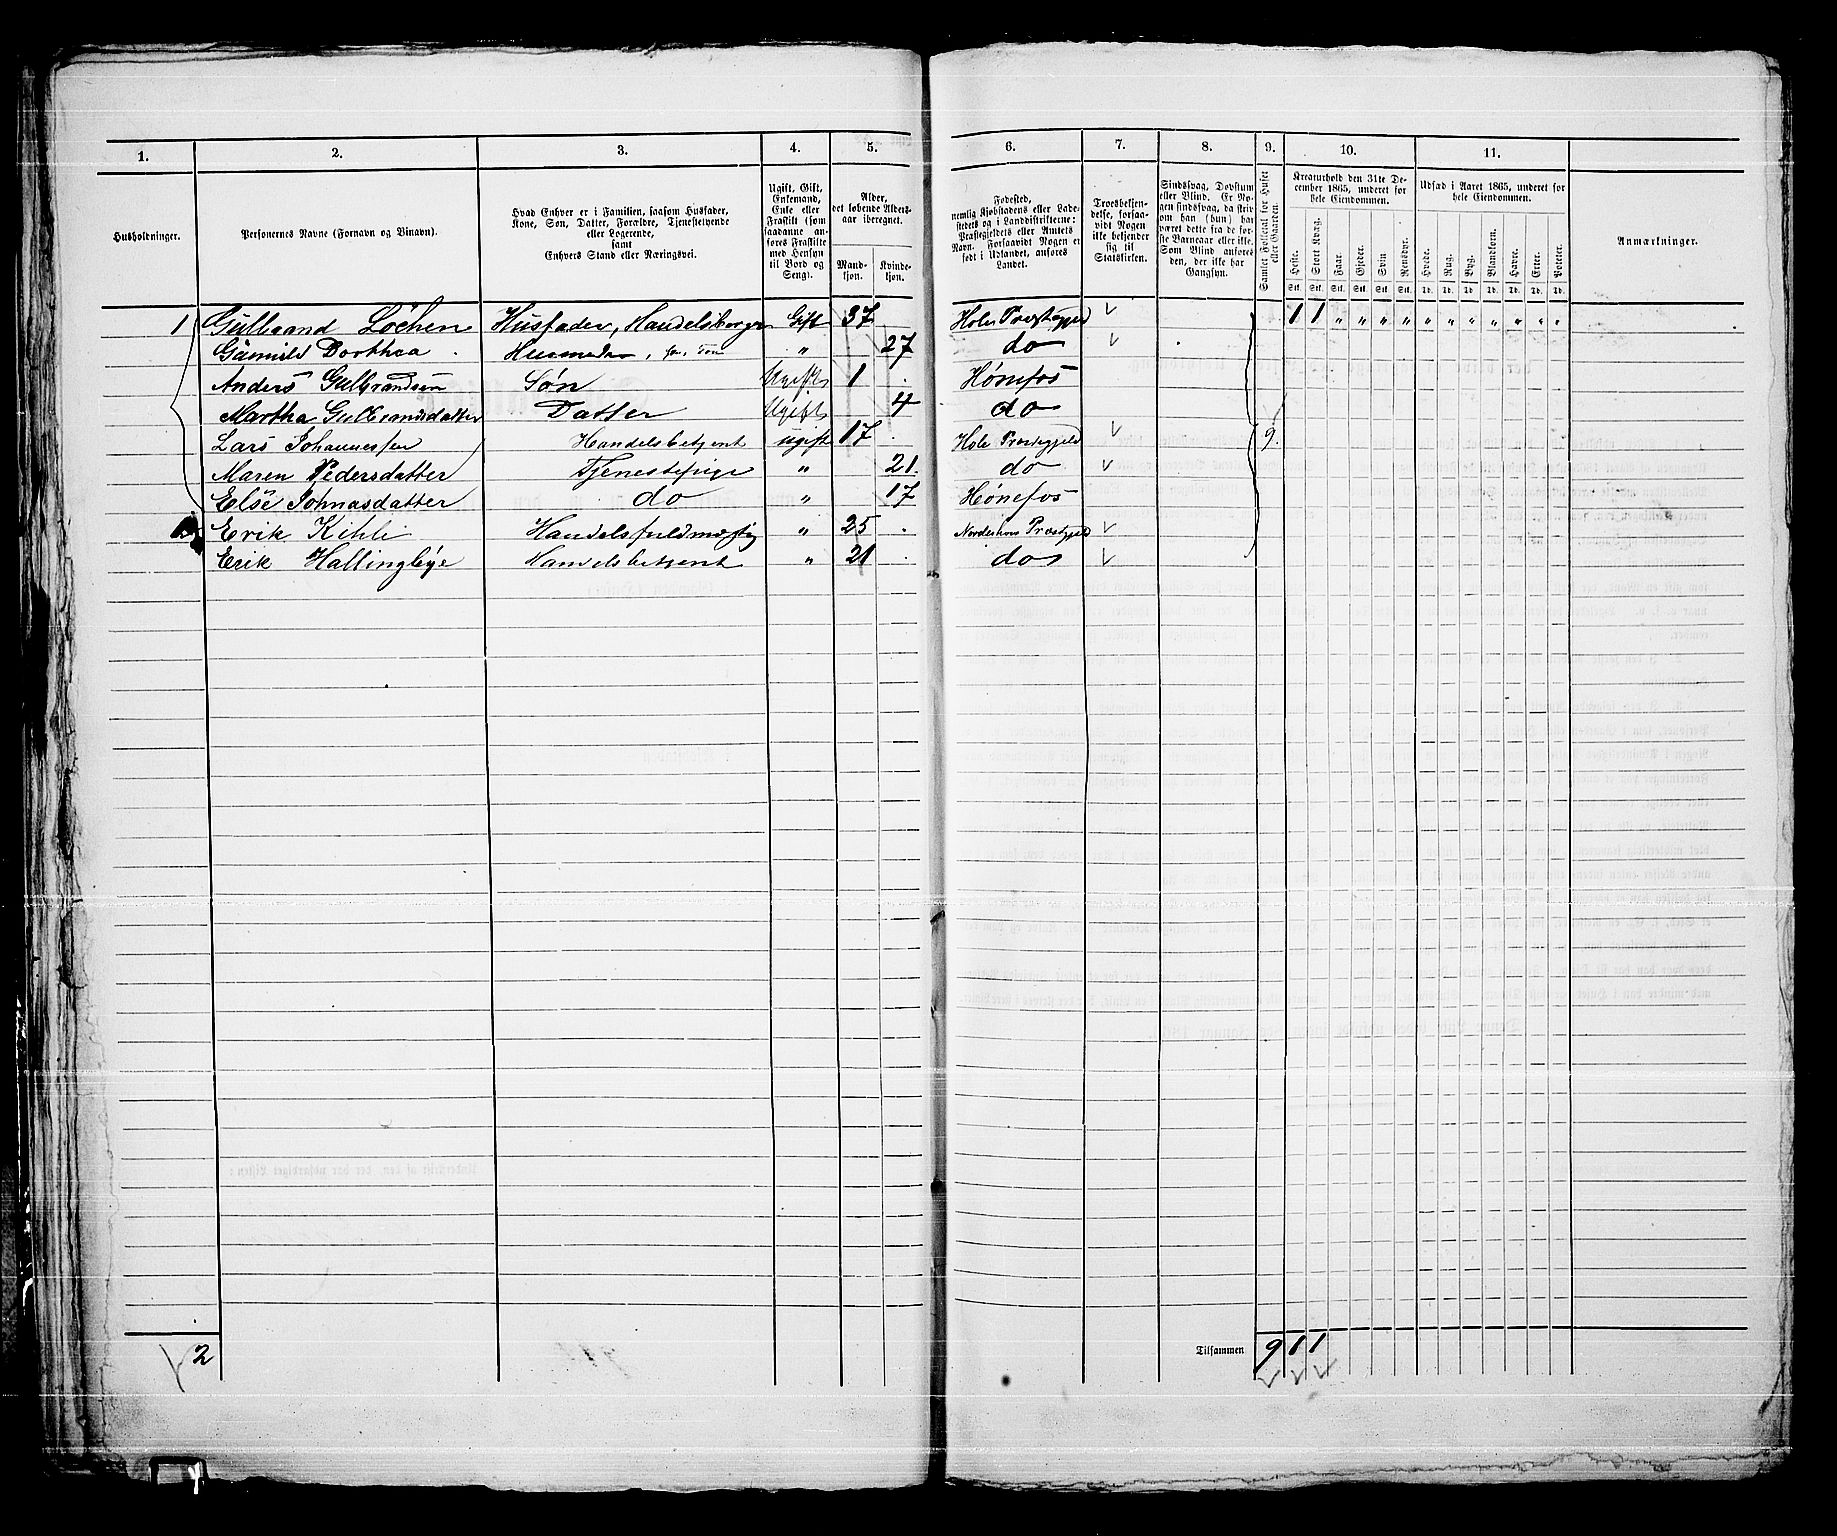 1. 2. 3. 4. 5. 6. 7. 8. 9. 10. 11.
Husholdninger.
Personernes Navne (Fornavn og Vinavn).
Hvad Enhver er i Familien, saasom Husfader,
Kone, Søn, Datter, Forældre, Tjenestetyende
eller Logerende,
samt
Enhvers Stand eller Næringsvei.
Ugift, Gift,
Enkemand,
Enke eller
Fraskilt (som
saadanne an-
føres Fraskilte
med Hensyn
til Bord og
Seng).
Alder,
det løbende Alders-
aar iberegnet.
Mand-
kjøn.
Kvinde-
kjøn.
Fødested,
nemlig Kjøbstadens eller Lade-
stedets og i Landdistrikterne:
Præstegjeldets eller Amtets
Navn. Forsaavidt Nogen er
født i Udlandet, anføres
Landet.
Troesbekjen-
delse, forsaa-
vidt Nogen
ikke bekjender
sig til
Statskirken.
Sindssvag, Døvstum
eller Blind. Er No-
gen sindssvag, da skriv
om han (hun) har
været dette fra de før-
ste Barneaar eller ikke.
Som Blind anføres
den, der ikke har
Gangsyn.
Samlet Folketal for Huset
eller Gaarden.
Kreaturhold den 31te De-
cember 1865, underet for
hele Eiendommen.
Heste. Stort Kvæg. Faar. Gjeder. Svin Rensdyr.
Stk. Stk. Stk. Stk. Stk. Stk.
Udsæd i Aaret 1865, underet for
hele Eiendommen.
Hvede. Rug. Byg. Blandkorn. Havre. Erter. Poteter.
Td. Td. Td. Td. Td. Td. Td.
Anmærkninger.
1 Gulbrand Löchen Husfader, Handelsborger Gift 37 Hole Præstegjeld 1 1 " " " " " " " " " " "
Dorthea Husmoder, " 27 do
Anders Gulbrandsen Søn Ugift 1 Hønefos
Martha Gulbrandsdatter Datter Ugift 4 do
Lars Johannesen Handelsbetjent ugift 17 Hole Præstegjeld 9.
Maren Pedersdatter Tjenestepige " 21. do
Else Johnasdatter do " 17 Hønefos
Erik Kihle Handelsfuldmægtig " 25 Norderhovs Præstegjeld
Erik Hallingbye Handelsbetjent " 21 do
2 Tilsammen 9 1 1